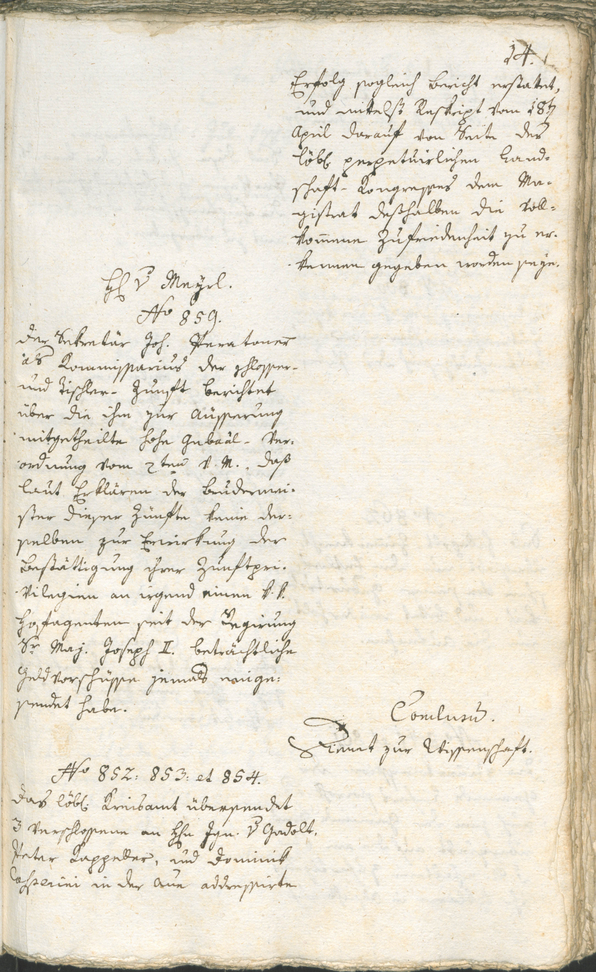 14.
Erfolg sogleich Bericht erstatet,
und mitelst Reskript vom 18ten
April darauf von Seite des
löbl. perpetuirlichen Land-
schaft-Kongresses dem Ma-
gistrat deßhalben die voll-
kom̄ene Zufriedenheit zu er-
kennen gegeben worden seye.
H v Mayrl.
No 859.
Der Sekretär Joh. Peratoner
als Kommissarius der Schlosser-
und Tischler-Zunft berichtet
über die ihm zur Äusserung
mitgetheilte hohe Gubäal-Ver-
ordnung vom 2ten d. M., daß
laut Erklären der Brudermei-
ster dieser Zünfte keine der-
selben zur Erwirkung der
Bestättigung ihrer Zunftpri-
vilegien an irgend einen k. k.
Hofagenten seit der Regirung
Sr Maj. Joseph II. beträchtliche
Geldvorschüsse jemals einge-
sendet habe.
Conclusum.
Dient zur Wissenschaft.
No 852: 853: et 854.
Das löbl. Kreisamt übersendet
3 verschlossene an Hn Ign. v Gadolt,
Peter Kappeller, und Dominik
in der Aue addressirte